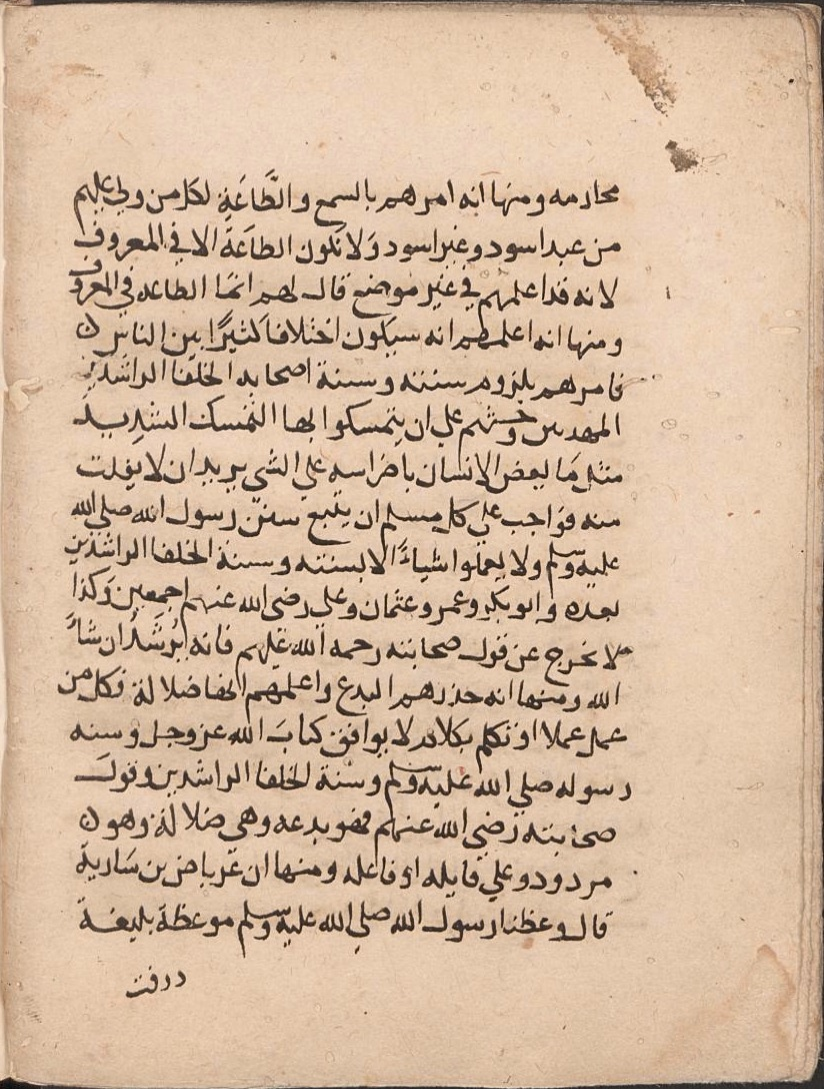 محارمه ومنها انه امرهم بالسمع والطَّاعَةِ لكل من ولي عليهم
من عبد اسود وغير اسود وَلا تكون الطاعَة الا في المعروف
لانه قد اعلمهم في غير موضع قال لهم انمَّا الطاعه في المعروف
ومنها انه اعلمهم انه سيكون اختلافا كثيرًا بين الناس
فامرهم بلزوم سنته وسنة اصحابه الخلفا الراشدين
المهديين وحثهم علي ان يتمسكوا بها التمسك الشديد
مثل مَا يعض الانسان باضراسه علي الشي يريد ان لا يفلت
منه فواجب علي كل مسلم ان يتبع سنن رسول الله صلي الله
عليه وسلم ولا يعملوا شياءً الا بسنته وسنة الخلفا الراشدين
بعده وابو بكر وعمر وعثمان وعلي رضي الله عنهم اجمعين وَكذا
لا نخرج عن قول صحابته رحمه الله عليهم فانه يُرشَدُ ان شاءَ
الله ومنها انه حذرهم البدع واعلمهم انها ضلالة فكل من
عمل عملا او تكلم بكلام لا يوافق كتابَ الله عز وجل وسنه
رسوله صلي الله عليه وسلم وسنة الخلفا الراشدين وقول
صحابته رضي الله عنهم فهو بدعه وهي ضلالة وهو
مردود علي قايله او فاعله ومنها ان عرباض بن سَارية
قال وعظنا رسول الله صلي الله عليه وسلم موعظة بليغة
درفت